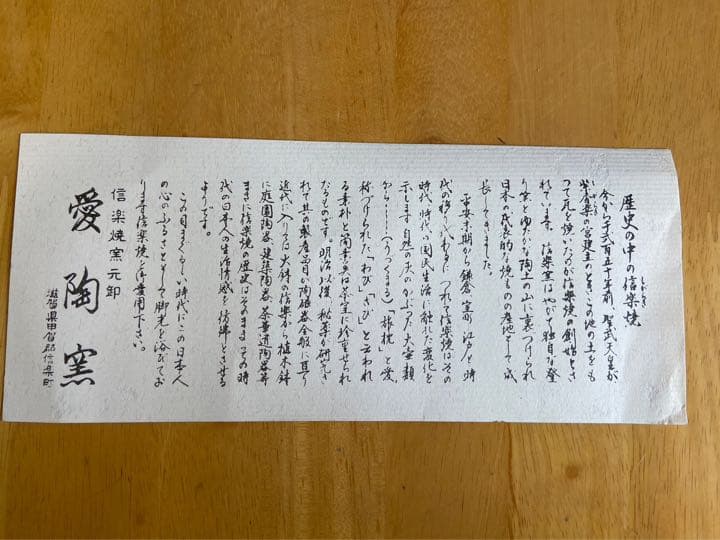 歴史の中の信楽焼
しがらきやき
今から千弐百五十年前、聖武天皇が
紫香楽の宮建立のときこの地の土をも
しがらき
って瓦を焼いたのが信楽焼の創始とさ
れています。信楽窯はやがて独自な登
り窯とゆたかな陶土の山に裏づけられ
日本の代表的な焼ものの産地として成
長してきました。
平安末期から鎌倉、室町、江戸と時
代の移りかわるにつれて信楽焼はその
時代、時代の国民生活に触れた変化を
示します。自然の灰のかぶった大壷類
から……(うづくまる)「旅枕」と愛
称づけられた「わび」「さび」と云われ
る素朴と簡素の美は茶室に珍重せられ
たものです。明治以後、釉薬が研究さ
れて其の製産品目が陶磁器全般に亘り
近代に入りては火鉢の信楽から植木鉢
に庭園陶器、建築陶器、茶華道陶器等
まさに信楽焼の歴史はそのまま、その時
代の日本人の生活情感を彷彿とさせる
ようです。
この目まぐるしい時代にこの日本人
の心のふるさととして脚光を浴びてお
ります信楽焼をご愛用下さい。
信楽焼窯元卸
愛陶窯
滋賀県甲賀郡信楽町